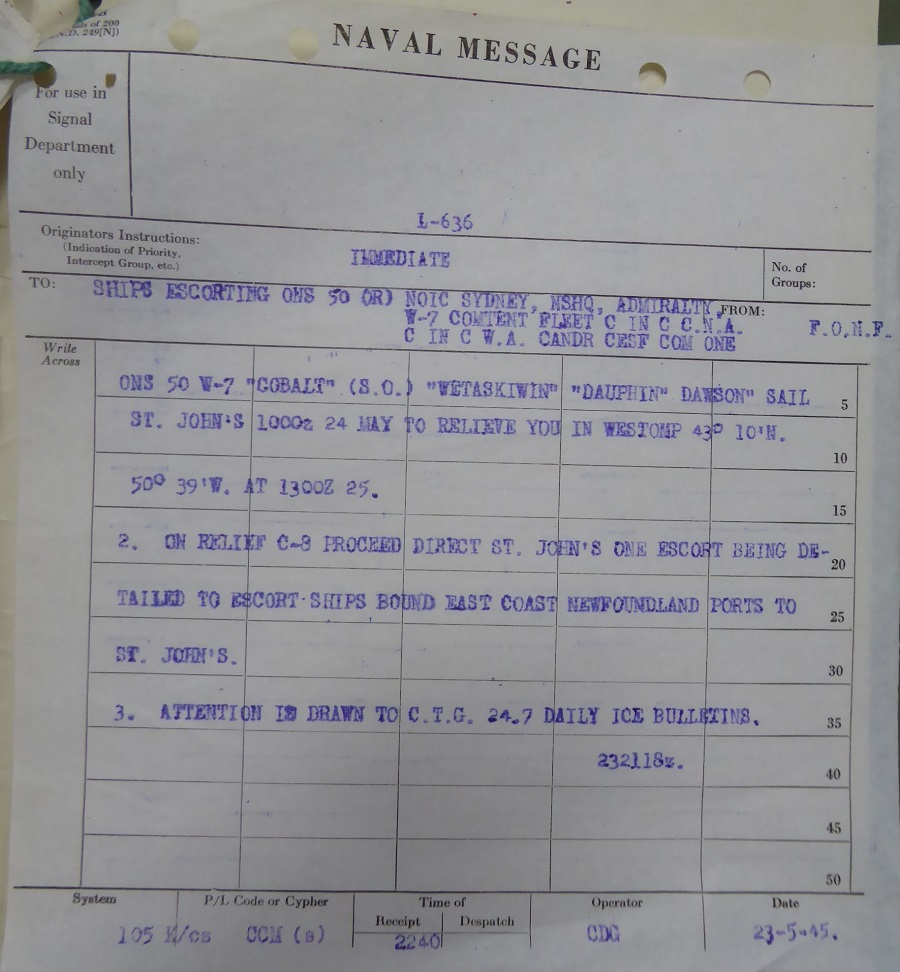 of 200
D. 249[N])
NAVAL MESSAGE
For use in
Signal
Department
only
L-636
Originators Instructions:
(Indication of Priority,
Intercept Group, etc.)
IMMEDIATE
No. of
Groups:
TO:
SHIPS ESCORTING ONS 50 (R) NOIC SYDNEY, NSHQ, ADMIRALTY,
FROM:
W-7 COMTENT FLEET C IN C C.N.A.
F.O.N.F.
C IN C W.A. CANDR CESF COM ONE
Write
Across
ONS 50 W-7 "COBALT" (S.O.) "WETASKIWIN" "DAUPHIN" DAWSON" SAIL
5
ST. JOHN'S 1000z 24 MAY TO RELIEVE YOU IN WESTOMP 43° 10'N.
10
50° 39'W. AT 1300Z 25.
15
2. ON RELIEF C-8 PROCEED DIRECT ST. JOHN'S ONE ESCORT BEING DE-
20
TAILED TO ESCORT SHIPS BOUND EAST COAST NEWFOUNDLAND PORTS TO
25
ST. JOHN'S.
30
3. ATTENTION IS DRAWN TO C.T.G. 24.7 DAILY ICE BULLETINS.
35
232118z.
40
45
50
System
P/L Code or Cypher
Time of
Operator
Date
Receipt
Despatch
105 K/cs
CCM (s)
2240
CDG
23-5-45.